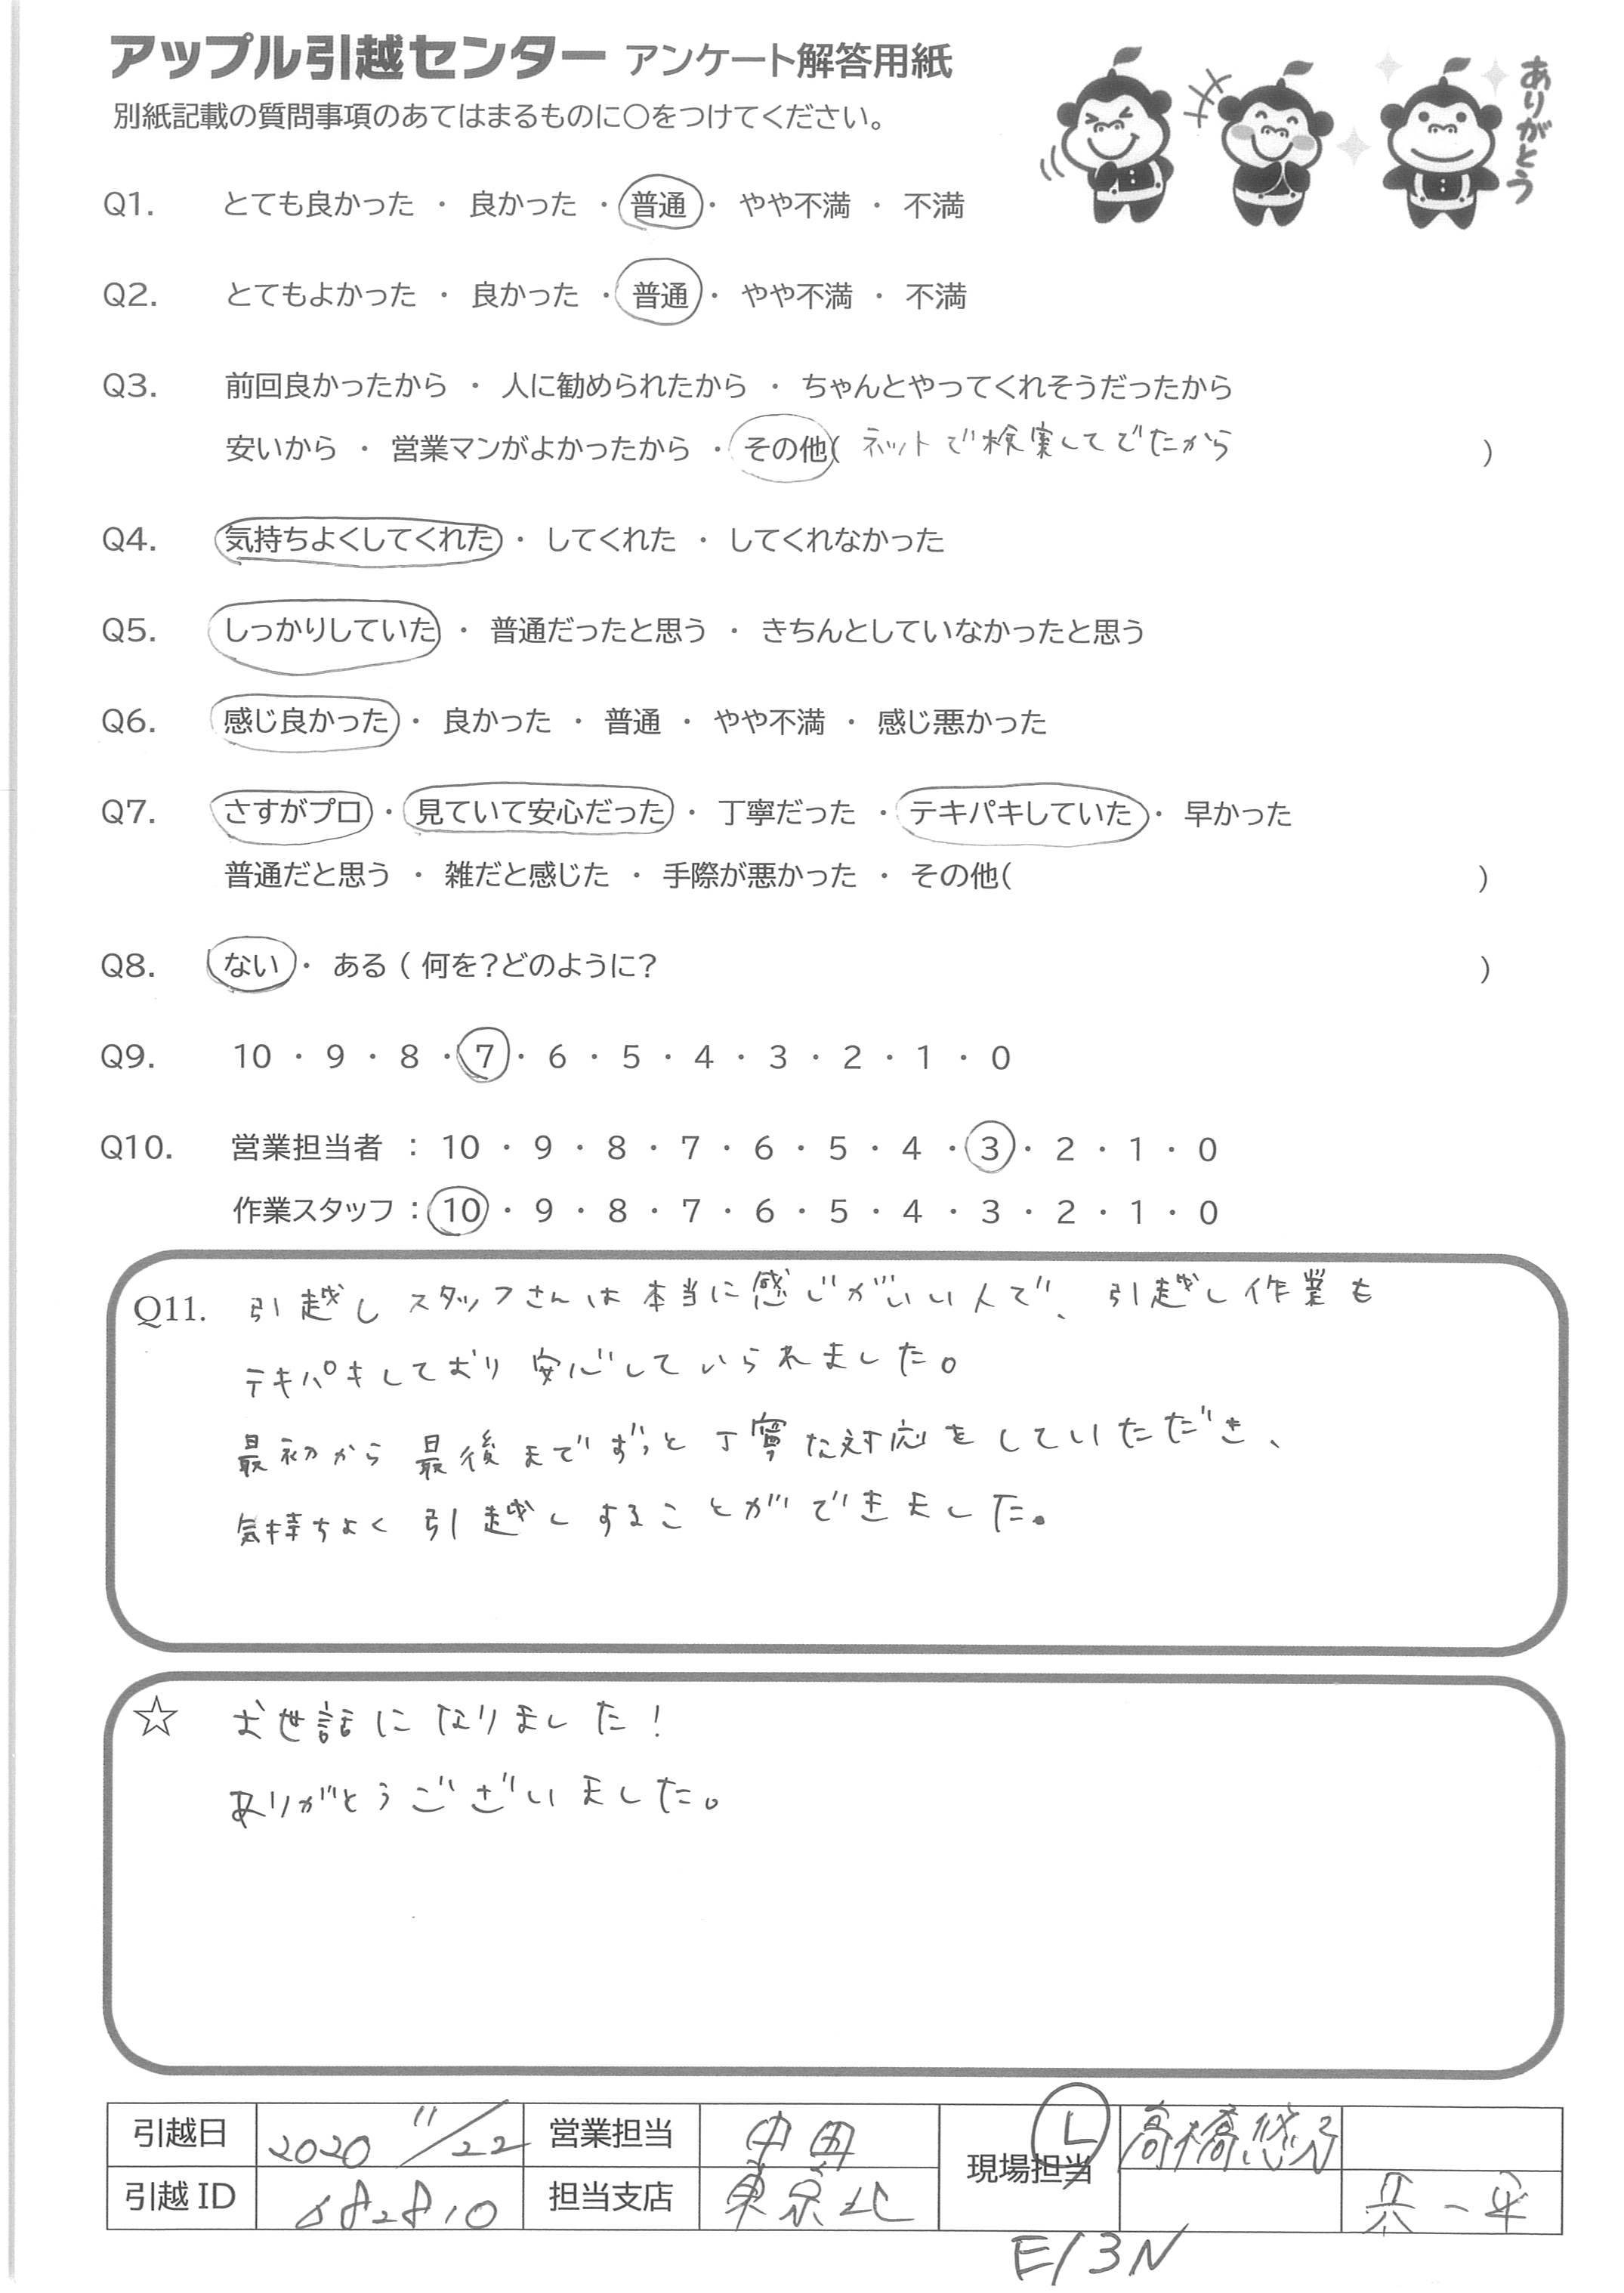 アップル引越センター アンケート解答用紙
別紙記載の質問事項のあてはまるものに○をつけてください。
ありがとう
Q1. とても良かった ・ 良かった ・ 普通 ・ やや不満 ・ 不満
Q2. とてもよかった ・ 良かった ・ 普通 ・ やや不満 ・ 不満
Q3. 前回良かったから ・ 人に勧められたから ・ ちゃんとやってくれそうだったから
安いから ・ 営業マンがよかったから ・ その他( ネットで検索してでたから )
Q4. 気持ちよくしてくれた ・ してくれた ・ してくれなかった
Q5. しっかりしていた ・ 普通だったと思う ・ きちんとしていなかったと思う
Q6. 感じ良かった ・ 良かった ・ 普通 ・ やや不満 ・ 感じ悪かった
Q7. さすがプロ ・ 見ていて安心だった ・ 丁寧だった ・ テキパキしていた ・ 早かった
普通だと思う ・ 雑だと感じた ・ 手際が悪かった ・ その他( )
Q8. ない ・ ある ( 何を?どのように? )
Q9. 10 ・ 9 ・ 8 ・ 7 ・ 6 ・ 5 ・ 4 ・ 3 ・ 2 ・ 1 ・ 0
Q10. 営業担当者 : 10 ・ 9 ・ 8 ・ 7 ・ 6 ・ 5 ・ 4 ・ 3 ・ 2 ・ 1 ・ 0
作業スタッフ : 10 ・ 9 ・ 8 ・ 7 ・ 6 ・ 5 ・ 4 ・ 3 ・ 2 ・ 1 ・ 0
Q11. 引越しスタッフさんは本当に感じがいい人で、引越し作業も
テキパキしており安心していられました。
最初から最後までずっと丁寧な対応をしていただき、
気持ちよく引越しすることができました。
☆ お世話になりました!
ありがとうございました。
引越日 2020 11/22 営業担当 中田 現場担当 L 高橋悠
引越ID 担当支店 東京北 一平
E13N